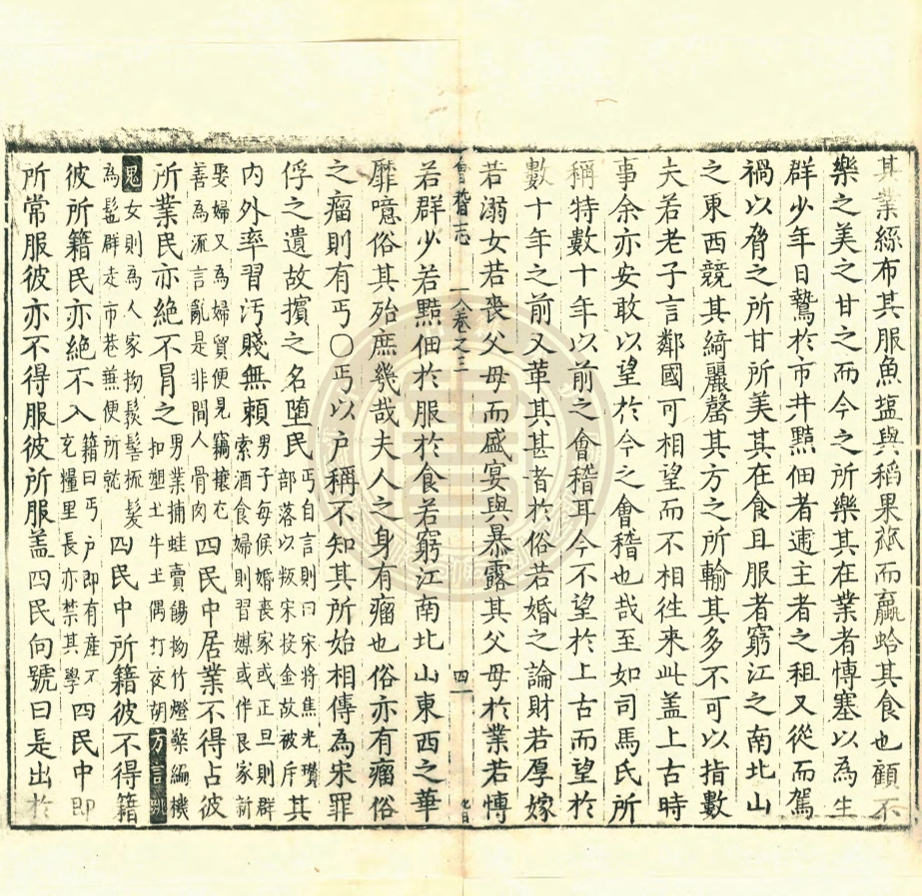 其業絲布其服魚塩與稻果蓏而蠃蛤其食也顧不
樂之美之甘之而今之所樂其在業者愽塞以為生
群少年日鶩於市井黠佃者逋主者之租又從而駕
禍以脅之所甘所美其在食且服者窮江之南北山
之東西競其綺麗罄其方之所輸其多不可以指數
夫若老子言鄰國可相望而不相往來此盖上古時
事余亦安敢以望於今之㑹稽也哉至如司馬氏所
稱特數十年以前之㑹稽耳今不望於上古而望於
數十年之前又革其甚者於俗若婚之論財若厚嫁
若溺女若喪父母而盛宴與暴露其父母於業若愽
㑹稽志 卷之三 四一
若群少若黠佃於服於食若窮江南北山東西之華
靡噫俗其殆庶幾哉夫人之身有瘤也俗亦有瘤俗
之瘤則有丐〇丐以户稱不知其所始相傳為宋罪
俘之遺故擯之名墮民丐自言則曰宋將焦光瓚部落以叛宋投金故被斥其
内外率習汚賤無賴男子每候婚喪家或正旦則群索酒食婦則習媒或伴良家新
娶婦又為婦貿便見竊攘尤善為流言亂是非間人骨肉四民中居業不得占彼
所業民亦絶不冐之男業捕蛙賣餳拗竹燈檠編機扣塑土牛土偶打夜胡方言跳
鬼女則為人家拗鬏髻梳髮為髢群走市巷兼便所就四民中所籍彼不得籍
彼所籍民亦絶不入籍曰丐户即有産不充糧里長亦禁其學四民中即
所常服彼亦不得服彼所服盖四民向號曰是出於